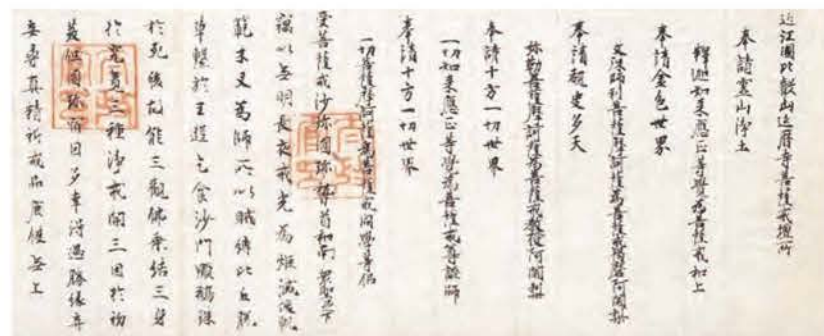 近江國比叡山延曆寺菩薩戒壇所
奉請靈山淨土
釋迦如来應正等覺為菩薩戒和上
奉請金色世界
文殊師利菩薩摩訶薩為菩薩戒羯磨阿闍梨
奉請覩史多天
弥勒菩薩摩訶薩為菩薩戒教授阿闍梨
奉請十方一切世界
一切如来應正等覺為菩薩戒尊證師
奉請十方一切世界
一切菩薩摩訶薩為菩薩戒同學等侶
受菩薩戒沙弥圓珎稽首和南衆聖足下
竊以無明長夜戒光為炬滅後軌
範木叉為師所以賊縛比丘脱
草繫於王遊乞食沙門顯鵝珠
於死後故能三觀佛乗結三身
於究竟三種淨戒開三因於初
發但圓珎宿因多幸得遇勝縁弃
妄尋真精祈戒品無上